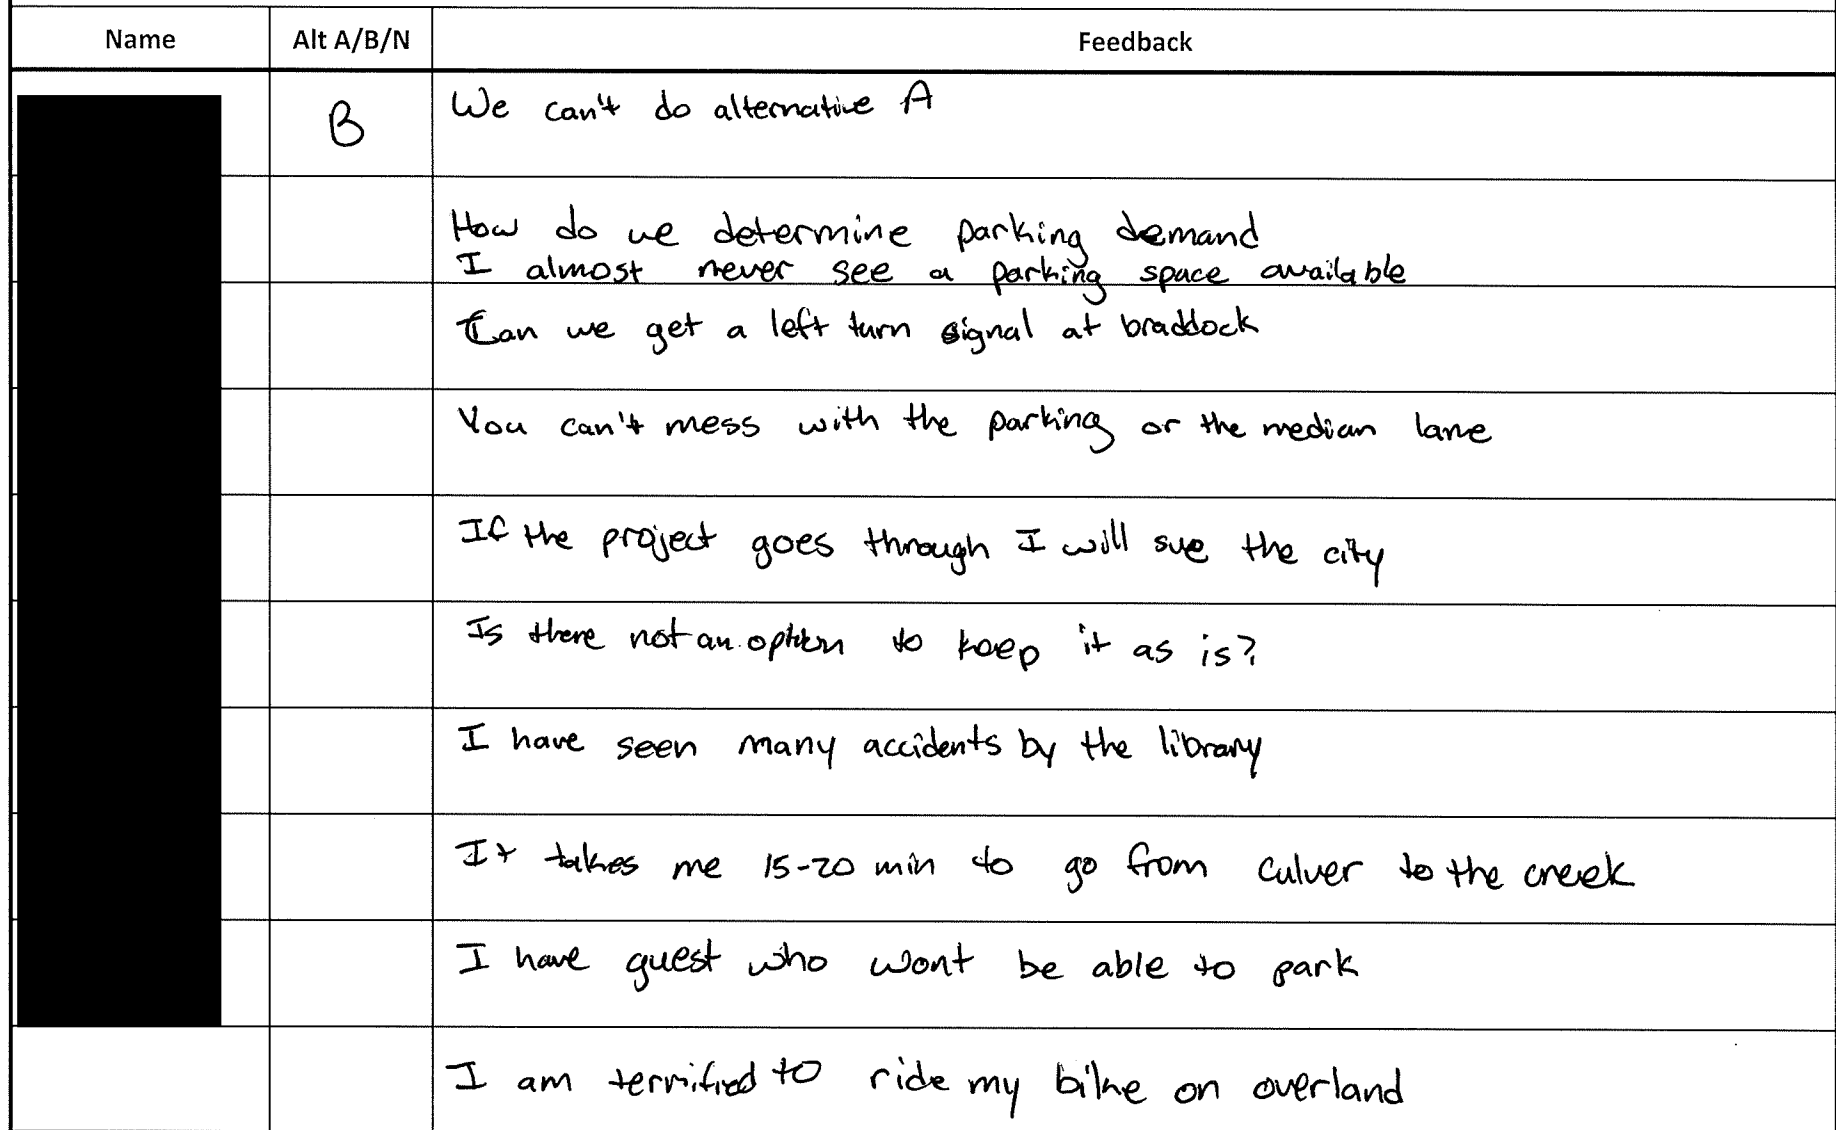 Name Alt A/B/N Feedback
B We can't do alternative A
How do we determine parking demand
I almost never see a parking space available
Can we get a left turn signal at braddock
You can't mess with the parking or the median lane
If the project goes through I will sue the city
Is there not an option to keep it as is?
I have seen many accidents by the library
It takes me 15-20 min to go from culver to the creek
I have guest who wont be able to park
I am terrified to ride my bike on overland